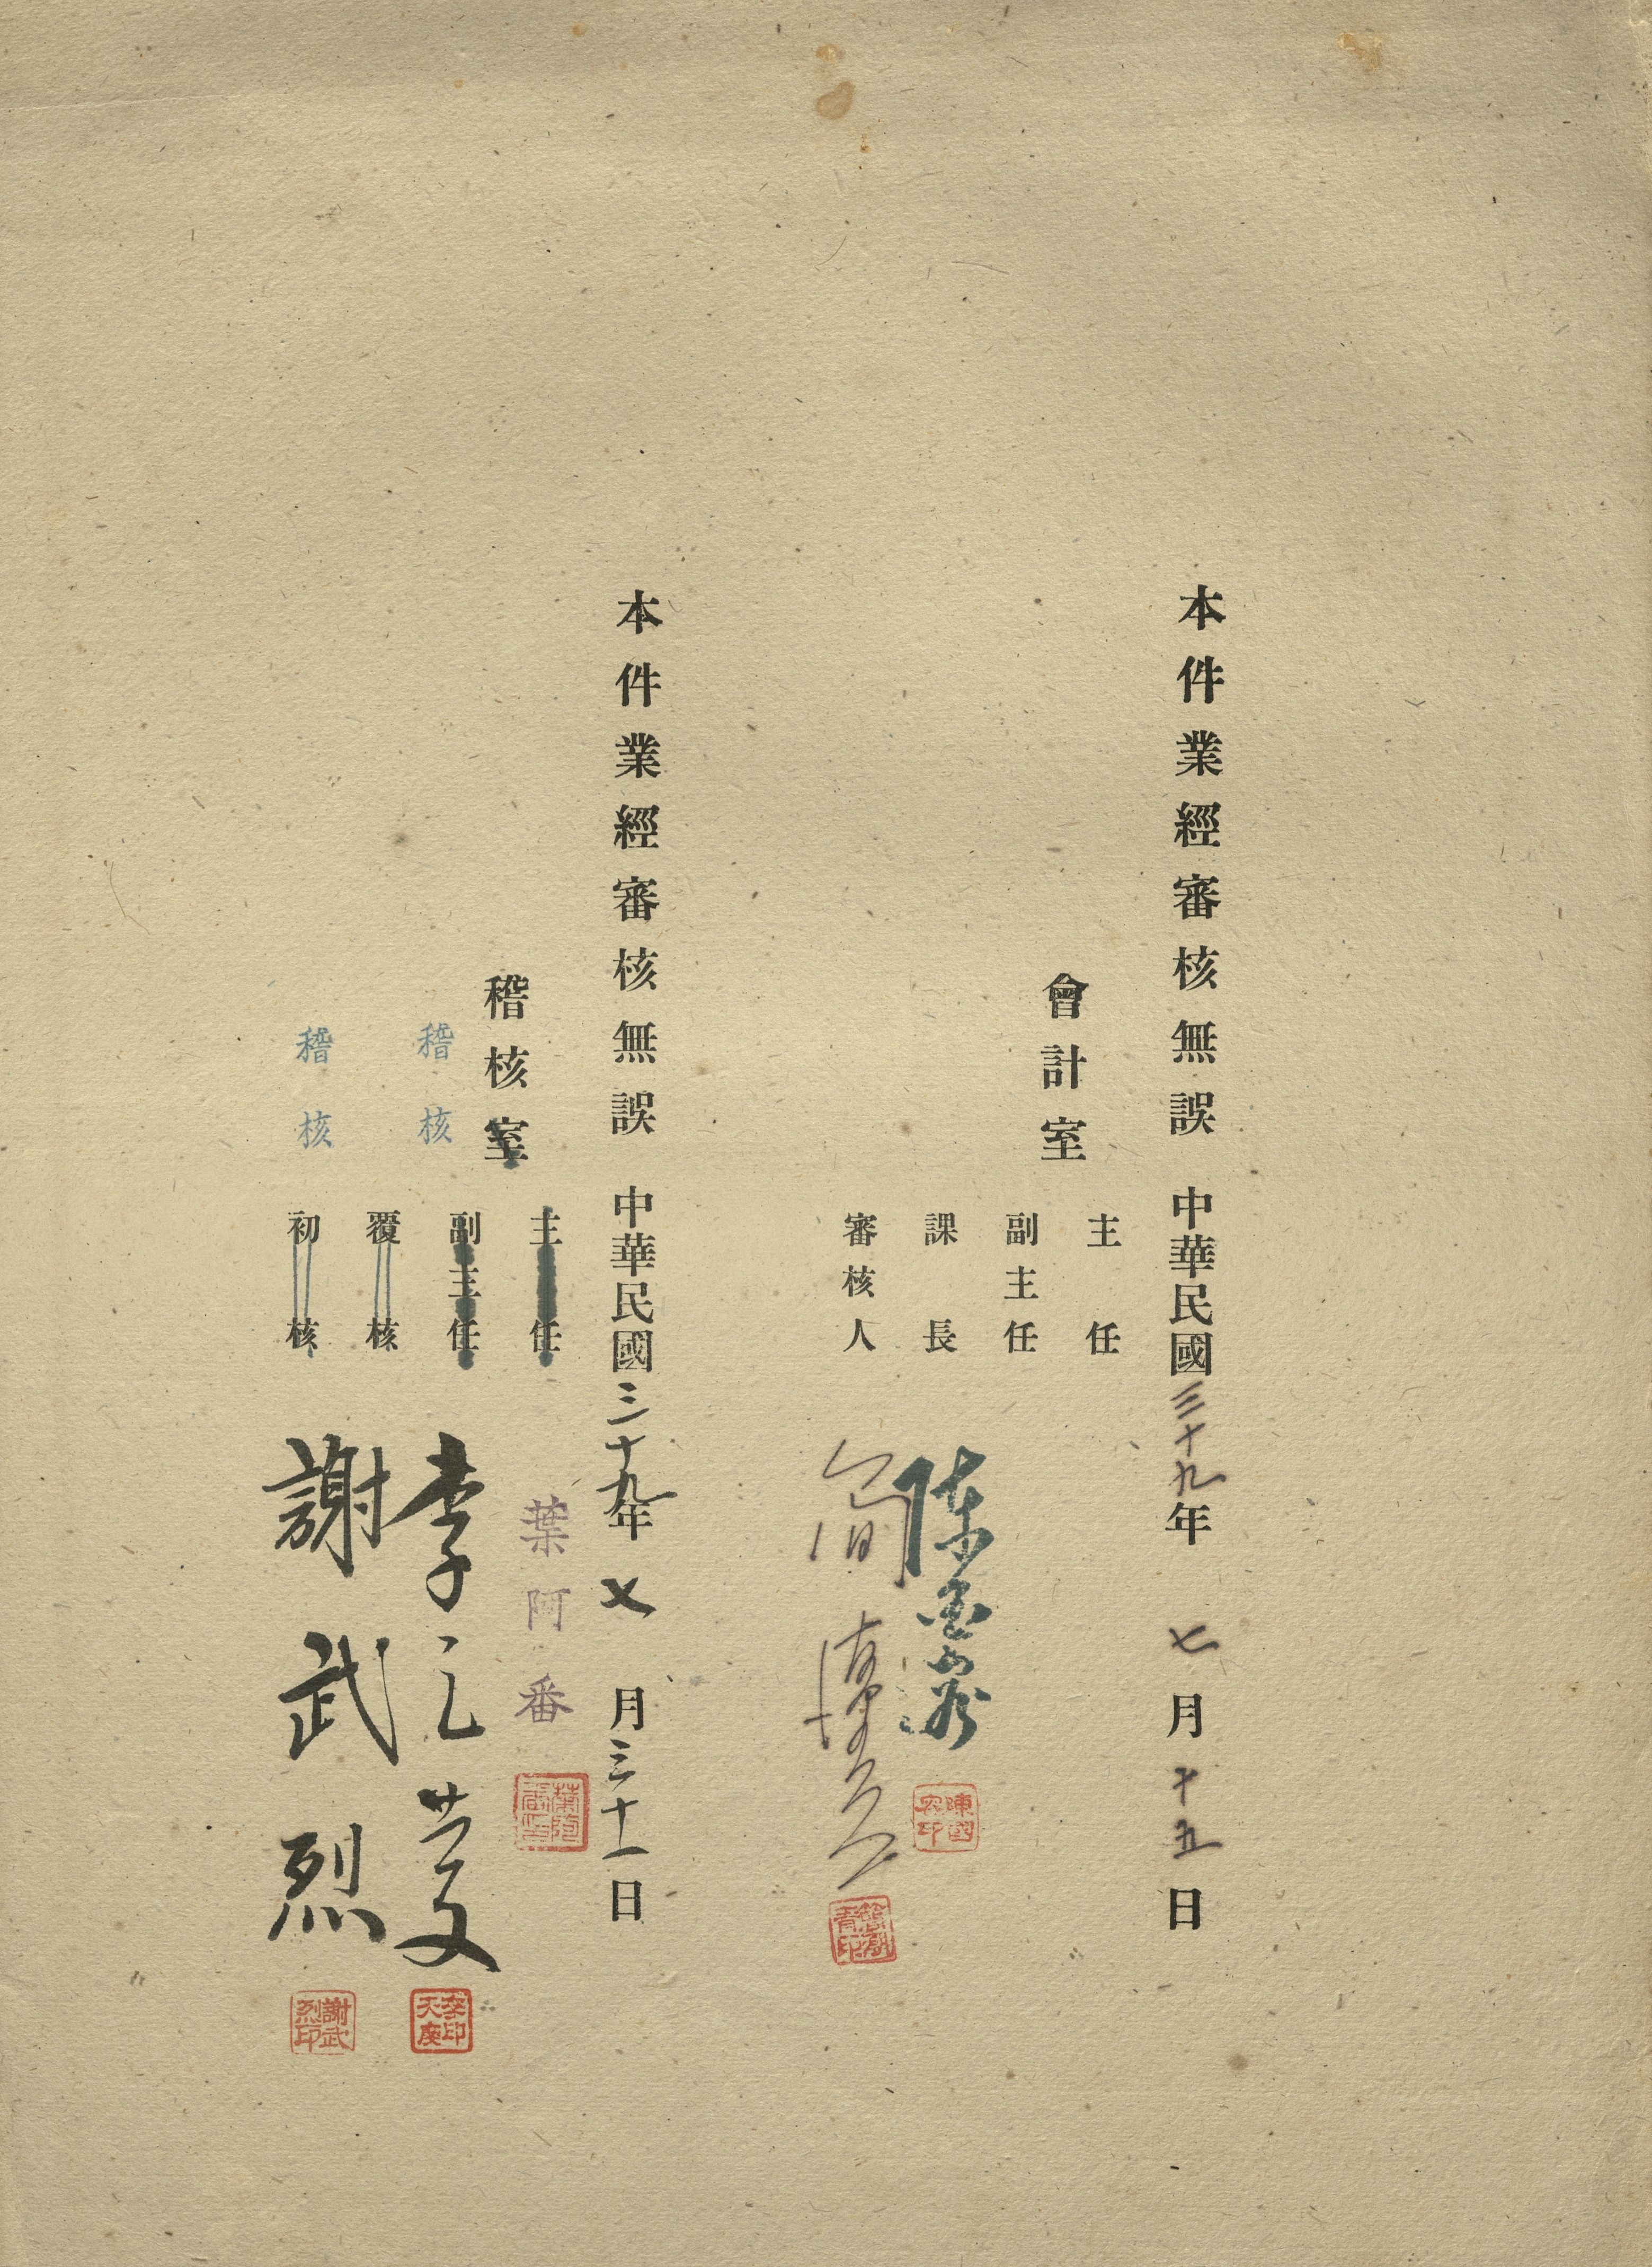 本件業經審核無誤 中華民國三十九年七月十五日
會計室
主任
副主任
課長
審核人
陳國容
陳國容印
簡
本件業經審核無誤 中華民國三十九年七月三十一日
稽核室
主任
葉阿番
副主任
稽核
覆核
李天慶
李印天慶
稽核
初核
謝武烈
謝武烈印